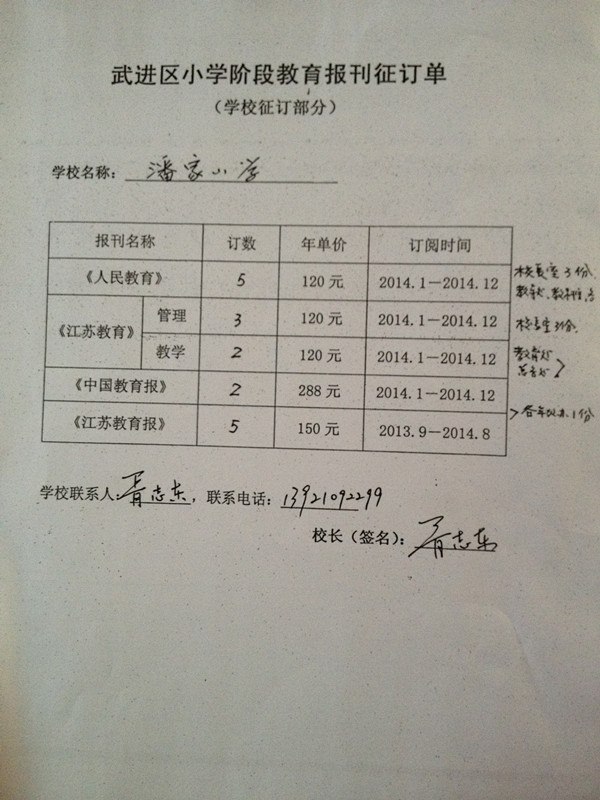 武进区小学阶段教育报刊征订单
（学校征订部分）
学校名称：潘家小学
报刊名称 订数 年单价 订阅时间
《人民教育》 5 120 元 2014.1－2014.12 校长室 3 份
《江苏教育》 管理 3 120 元 2014.1－2014.12 校长室 3份
教学 2 120 元 2014.1－2014.12
《中国教育报》 2 288 元 2014.1－2014.12
《江苏教育报》 5 150 元 2013.9－2014.8 1份
学校联系人：胥志东，联系电话：13921092299
校长（签名）：胥志东